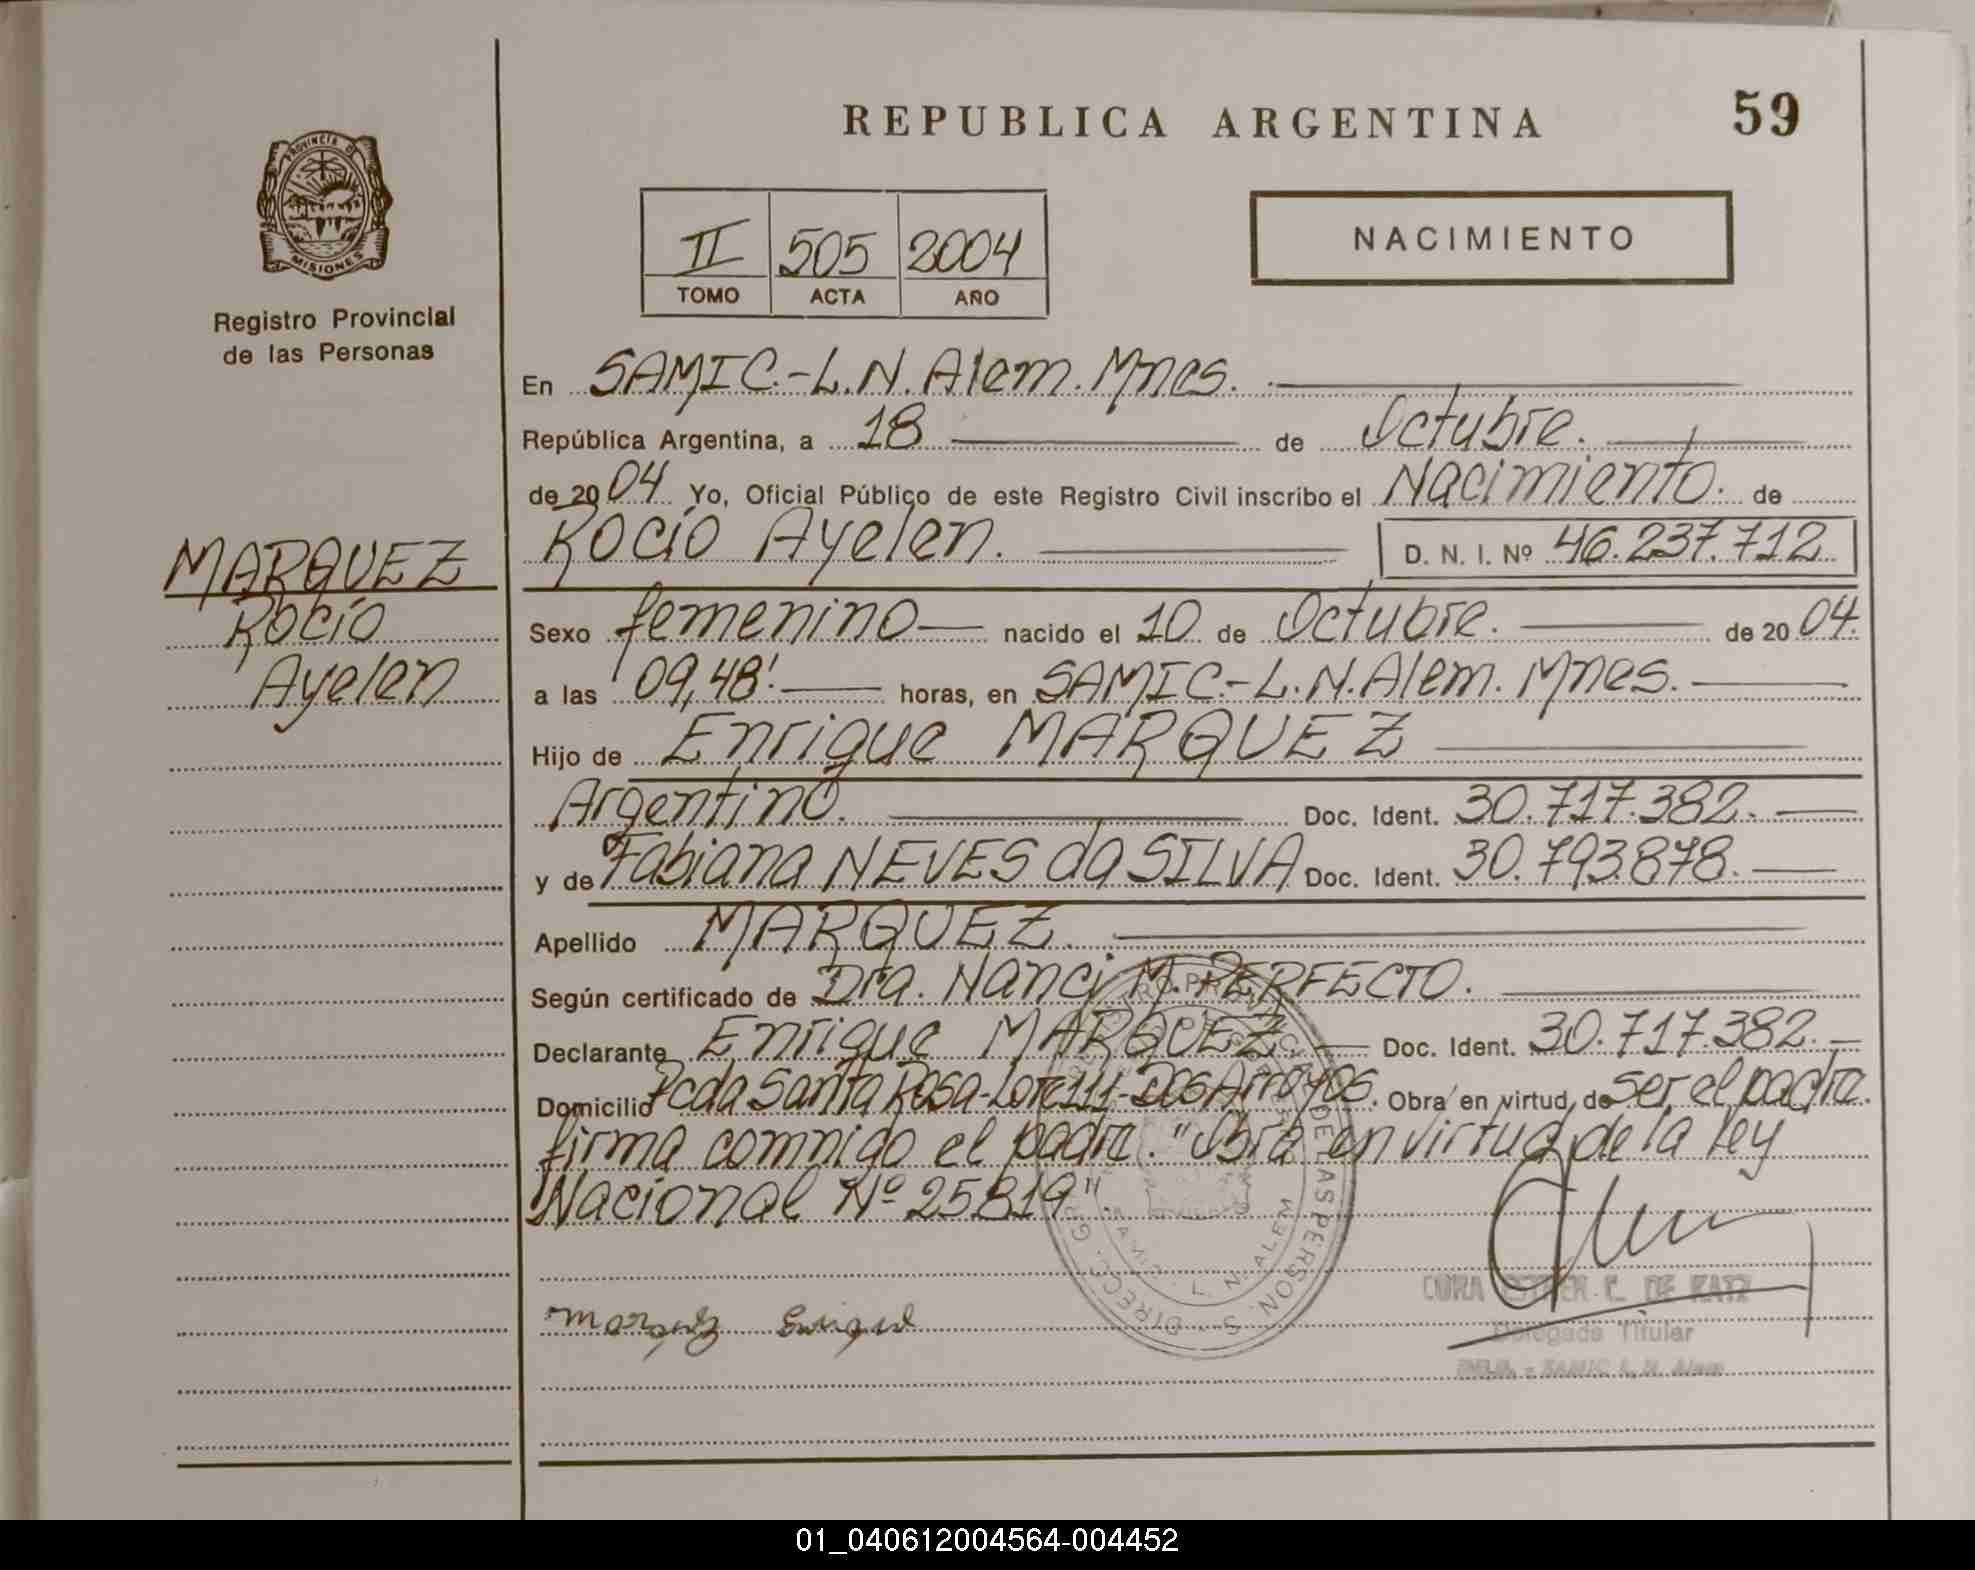 REPUBLICA ARGENTINA 59
PROVINCIA DE
MISIONES
Registro Provincial
de las Personas
II 505 2004
TOMO ACTA AÑO
NACIMIENTO
En SAMIC.-L.N.Alem.Mnes.
República Argentina, a 18 de Octubre.
de 2004 Yo, Oficial Público de este Registro Civil inscribo el Nacimiento. de
Rocío Ayelen. D. N. I. Nº 46.237.712
MARQUEZ
Rocío
Ayelen
Sexo femenino nacido el 10 de Octubre. de 2004.
a las 09,48'. horas, en SAMIC.-L.N.Alem. Mnes.
Hijo de Enrique MARQUEZ
Argentino. Doc. Ident. 30.717.382.
y de Fabiana NEVES da SILVA Doc. Ident. 30.793.878.
Apellido MARQUEZ.
Según certificado de Dra. Nanci M. PERFECTO.
Declarante Enrique MARQUEZ. Doc. Ident. 30.717.382.
Domicilio Pcda Santa Rosa-Lote 111-Dos Arroyos. Obra en virtud de ser el padre.
firma conmigo el padre. "Obra en virtud de la ley
Nacional Nº 25819"
DE LAS PERSONAS
SAMIC. L. N. ALEM
DIRECC. GR
Marquez Enrique
CORA ESTHER C. DE KATZ
Delegada Titular
SAMIC L. N. Alem
01_040612004564-004452